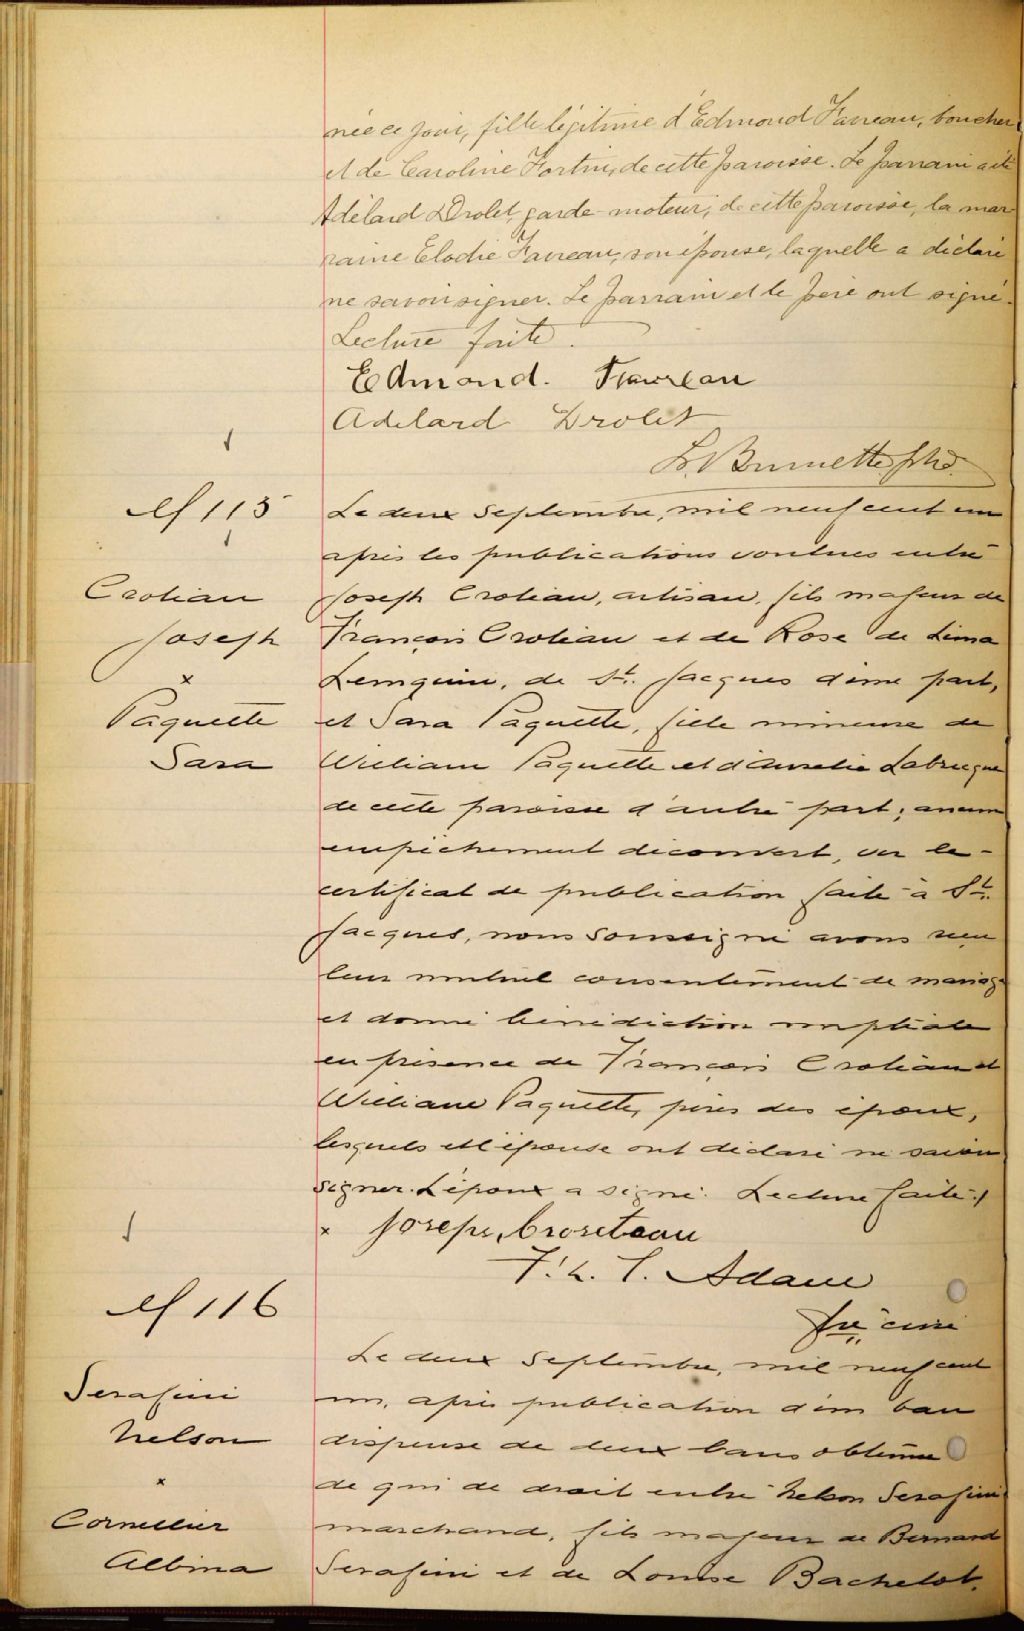 née ce jour, fille légitime d'Edmond Favreau, boucher
et de Caroline Fortin, de cette paroisse. Le parrain a été
Adélard Drolet, garde-moteur, de cette paroisse, la mar-
raine Elodie Favreau, son épouse, laquelle a déclaré
ne savoir signer. Le parrain et le père ont signé.
Lecture faite.
Edmond. Favreau
Adelard Drolet
Brunette ptre.
M 115
Croteau
Joseph
x
Paquette
Sara
Le deux septembre, mil neuf cent un
après les publications voulues entre
Joseph Croteau, artisan, fils majeur de
François Croteau et de Rose de Lima
de St. Jacques d'une part,
et Sara Paquette, fille mineure de
William Paquette et d'Aurelie
de cette paroisse d'autre part; aucun
empêchement découvert, vu le-
certificat de publication faite à St.
Jacques, nous soussigné avons reçu
leur mutuel consentement de mariage
et donné bénédiction nuptiale
en présence de François Croteau et
William Paquette, pères des époux,
lesquels et l'épouse ont déclaré ne savoir
signer. L'époux a signé. Lecture faite./
x Joseph Croseteau
F. L. T. Adam
ptre curé
M 116
Serafini
Nelson
x
Cornellier
Albina
Le deux septembre, mil neuf cent
un, après publication d'un ban
dispense de deux bans obtenue
de qui de droit entre Nelson Serafini
marchand, fils majeur de Bernard
Serafini et de Louise Bachelot,